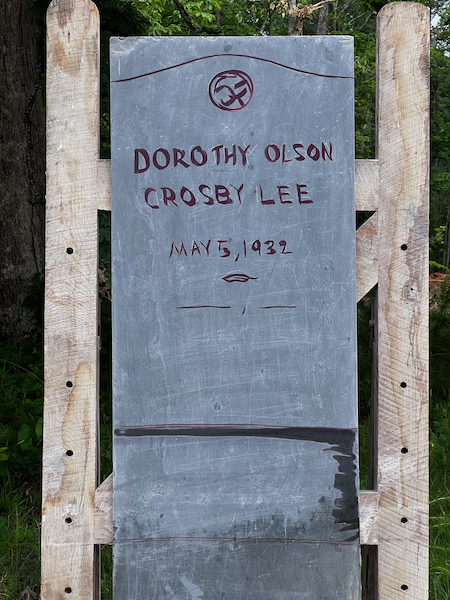 DOROTHY OLSON
CROSBY LEE
MAY 5, 1932